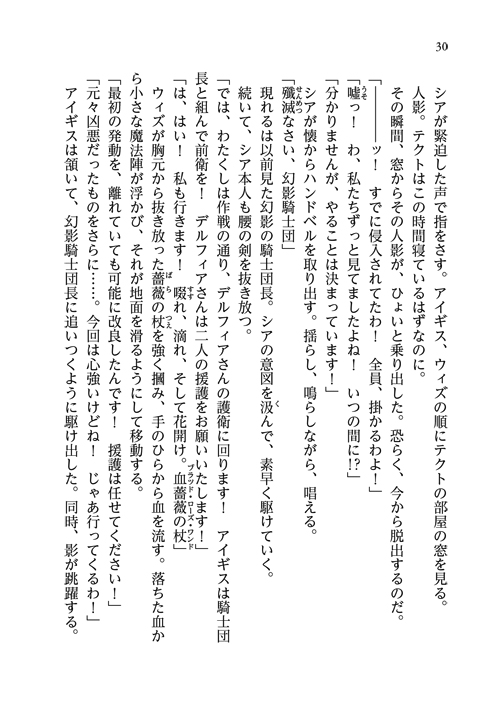 30
シアが緊迫した声で指をさす。アイギス、ウィズの順にテクトの部屋の窓を見る。
人影。テクトはこの時間寝ているはずなのに。
その瞬間、窓からその人影が、ひょいと乗り出した。恐らく、今から脱出するのだ。
「――――ッ！　すでに侵入されてたわ！　全員、掛かるわよ！」
「嘘っ！　わ、私たちずっと見てましたよね！　いつの間に!?」
「分かりませんが、やることは決まっています！」
シアが懐からハンドベルを取り出す。揺らし、鳴らしながら、唱える。
「殲滅なさい、幻影騎士団」
現れるは以前見た幻影の騎士団長。シアの意図を汲んで、素早く駆けていく。
続いて、シア本人も腰の剣を抜き放つ。
「では、わたくしは作戦の通り、デルフィアさんの護衛に回ります！　アイギスは騎士団
長と組んで前衛を！　デルフィアさんは二人の援護をお願いいたします！」
「は、はい！　私も行きます！　啜れ、滴れ、そして花開け。血薔薇の杖」
ウィズが胸元から抜き放った薔薇の杖を強く摑み、手のひらから血を流す。落ちた血か
ら小さな魔法陣が浮かび、それが地面を滑るようにして移動する。
「最初の発動を、離れていても可能に改良したんです！　援護は任せてください！」
「元々凶悪だったものをさらに……。今回は心強いけどね！　じゃあ行ってくるわ！」
アイギスは頷いて、幻影騎士団長に追いつくように駆け出した。同時、影が跳躍する。